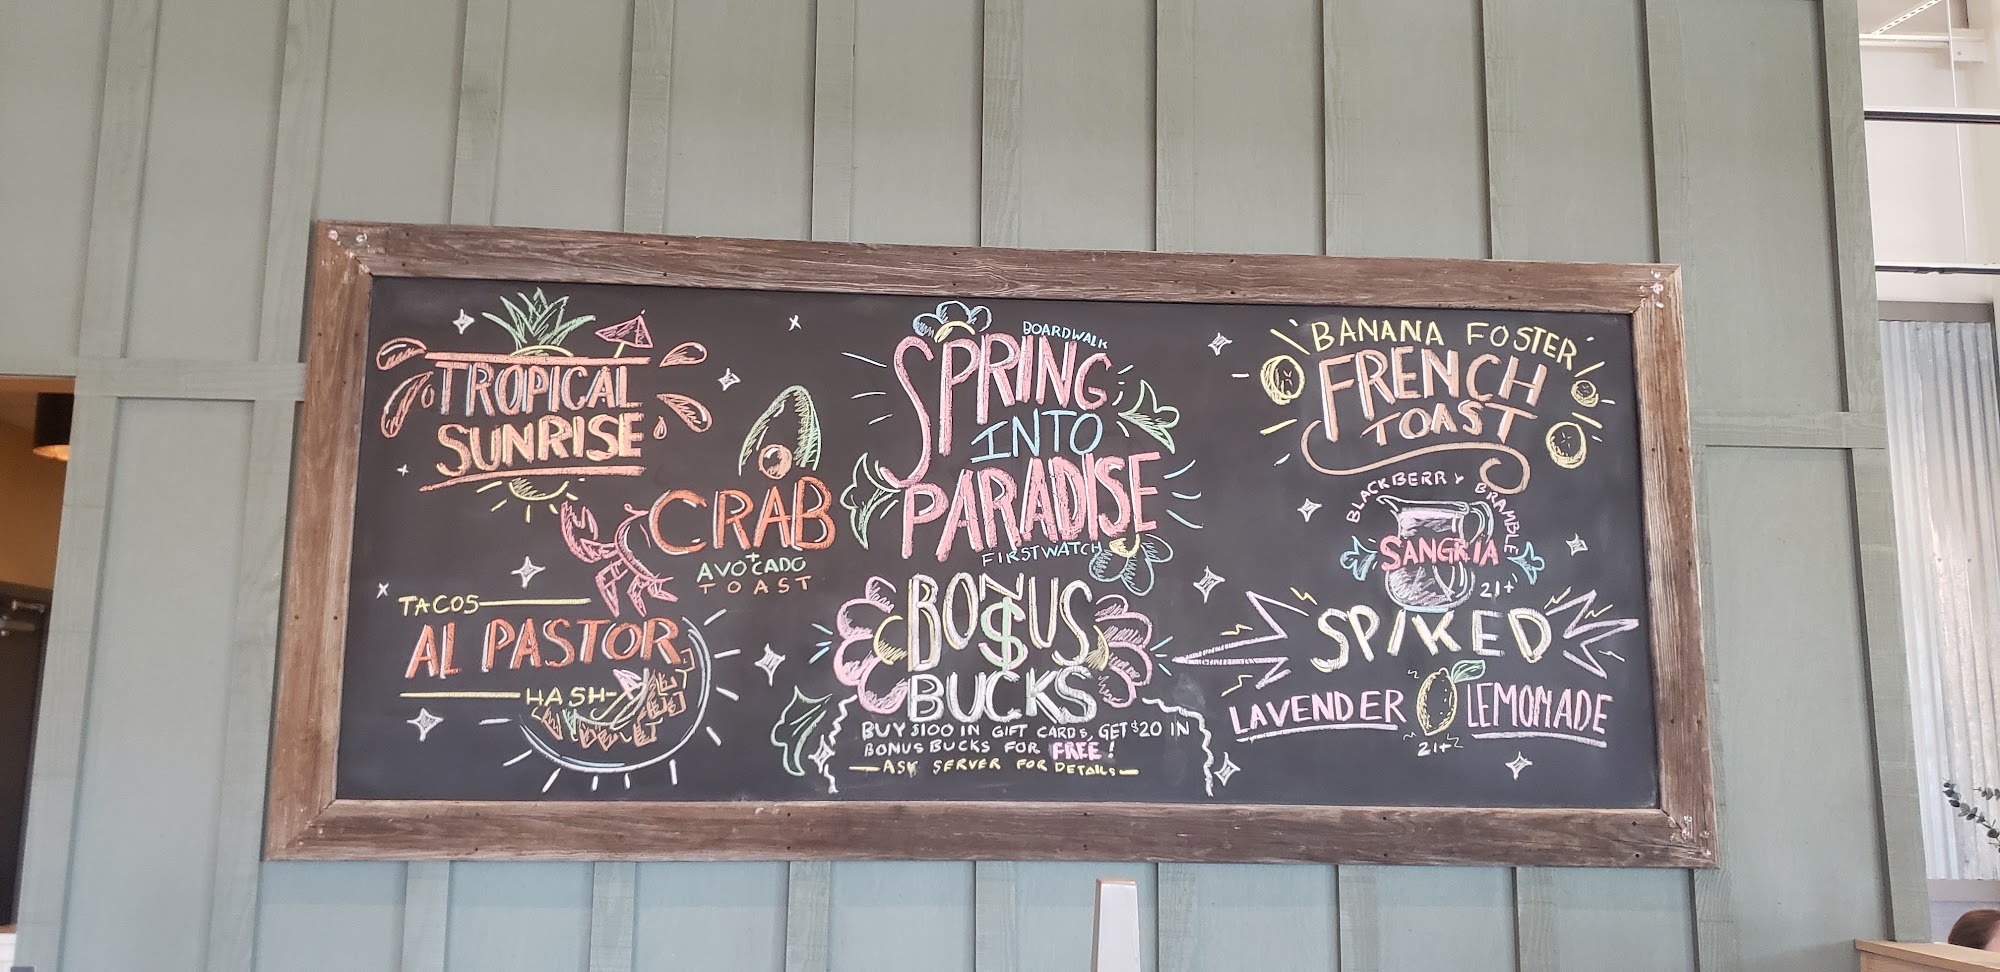 TROPICAL
SUNRISE
CRAB
+
AVOCADO
TOAST
TACOS
AL PASTOR
HASH
BOARDWALK
SPRING
INTO
PARADISE
FIRSTWATCH
BONUS
$
BUCKS
BUY $100 IN GIFT CARDS, GET $20 IN
BONUS BUCKS FOR FREE!
—ASK SERVER FOR DETAILS—
BANANA FOSTER
FRENCH
TOAST
BLACKBERRY BRAMBLE
SANGRIA
21+
SPIKED
LAVENDER LEMONADE
21+